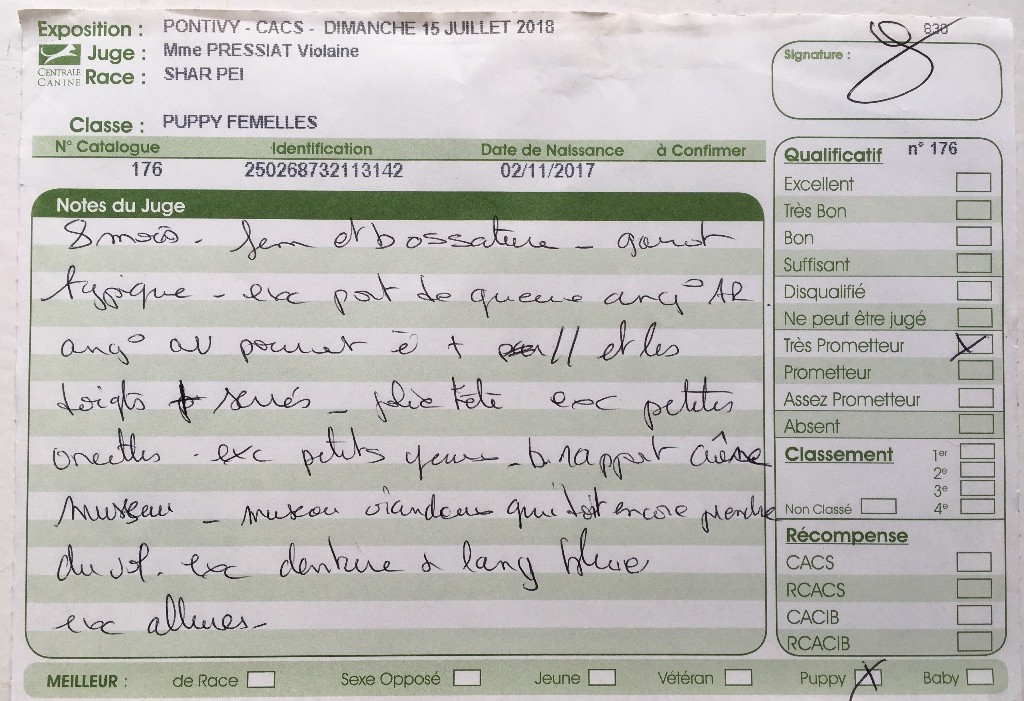 Exposition : PONTIVY - CACS - DIMANCHE 15 JUILLET 2018
Juge : Mme PRESSIAT Violaine
CENTRALE CANINE
Race : SHAR PEI
Classe : PUPPY FEMELLES
838
Signature :
N° Catalogue Identification Date de Naissance à Confirmer
176 250268732113142 02/11/2017
Notes du Juge
8 mois - fem et bossature - garrot
typique - exc port de queue ang° AR.
ang° AV pourrait ê + // et les
doigts + serrés - jolie tête exc petites
oreilles - exc petits yeux - b rapport crâne
museau - museau viandeux qui doit encore prendre
du vol. exc denture & lang bleue
exc allures -
Qualificatif n° 176
Excellent
Très Bon
Bon
Suffisant
Disqualifié
Ne peut être jugé
Très Prometteur X
Prometteur
Assez Prometteur
Absent
Classement 1er
2e
3e
Non Classé 4e
Récompense
CACS
RCACS
CACIB
RCACIB
MEILLEUR : de Race Sexe Opposé Jeune Vétéran Puppy X Baby